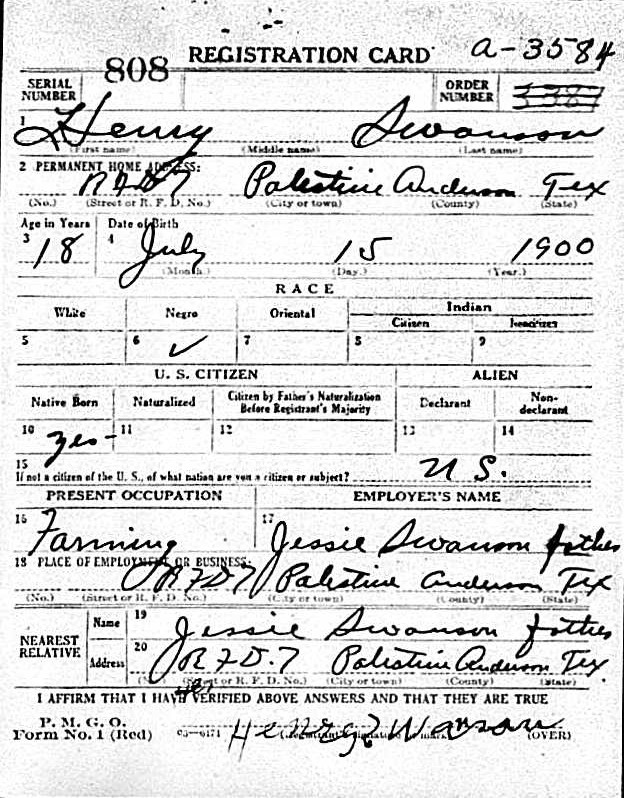 REGISTRATION CARD A-3584
SERIAL NUMBER 808 ORDER NUMBER
1 Henry Swanson
(First name) (Middle name) (Last name)
2 PERMANENT HOME ADDRESS:
R F D 7 Palestine Anderson Tex
(No.) (Street or R. F. D. No.) (City or town) (County) (State)
Age in Years Date of Birth
3 18 4 July 15 1900
(Month.) (Day.) (Year.)
RACE
White Negro Oriental Indian
Citizen Noncitizen
5 6 ✓ 7 8 9
U. S. CITIZEN ALIEN
Native Born Naturalized Citizen by Father's Naturalization Before Registrant's Majority Declarant Non-declarant
10 yes- 11 12 13 14
15 If not a citizen of the U. S., of what nation are you a citizen or subject? U S.
PRESENT OCCUPATION EMPLOYER'S NAME
16 Farming 17 Jessie Swanson father
18 PLACE OF EMPLOYMENT OR BUSINESS:
R F D 7 Palestine Anderson Tex
(No.) (Street or R. F. D. No.) (City or town) (County) (State)
NEAREST RELATIVE Name 19 Jessie Swanson father
Address 20 R F D. 7 Palestine Anderson Tex
(No.) (Street or R. F. D. No.) (City or town) (County) (State)
I AFFIRM THAT I HAVE VERIFIED ABOVE ANSWERS AND THAT THEY ARE TRUE
P. M. G. O.
Form No. 1 (Red) 03—6171 (Registrant's signature or mark) (OVER)